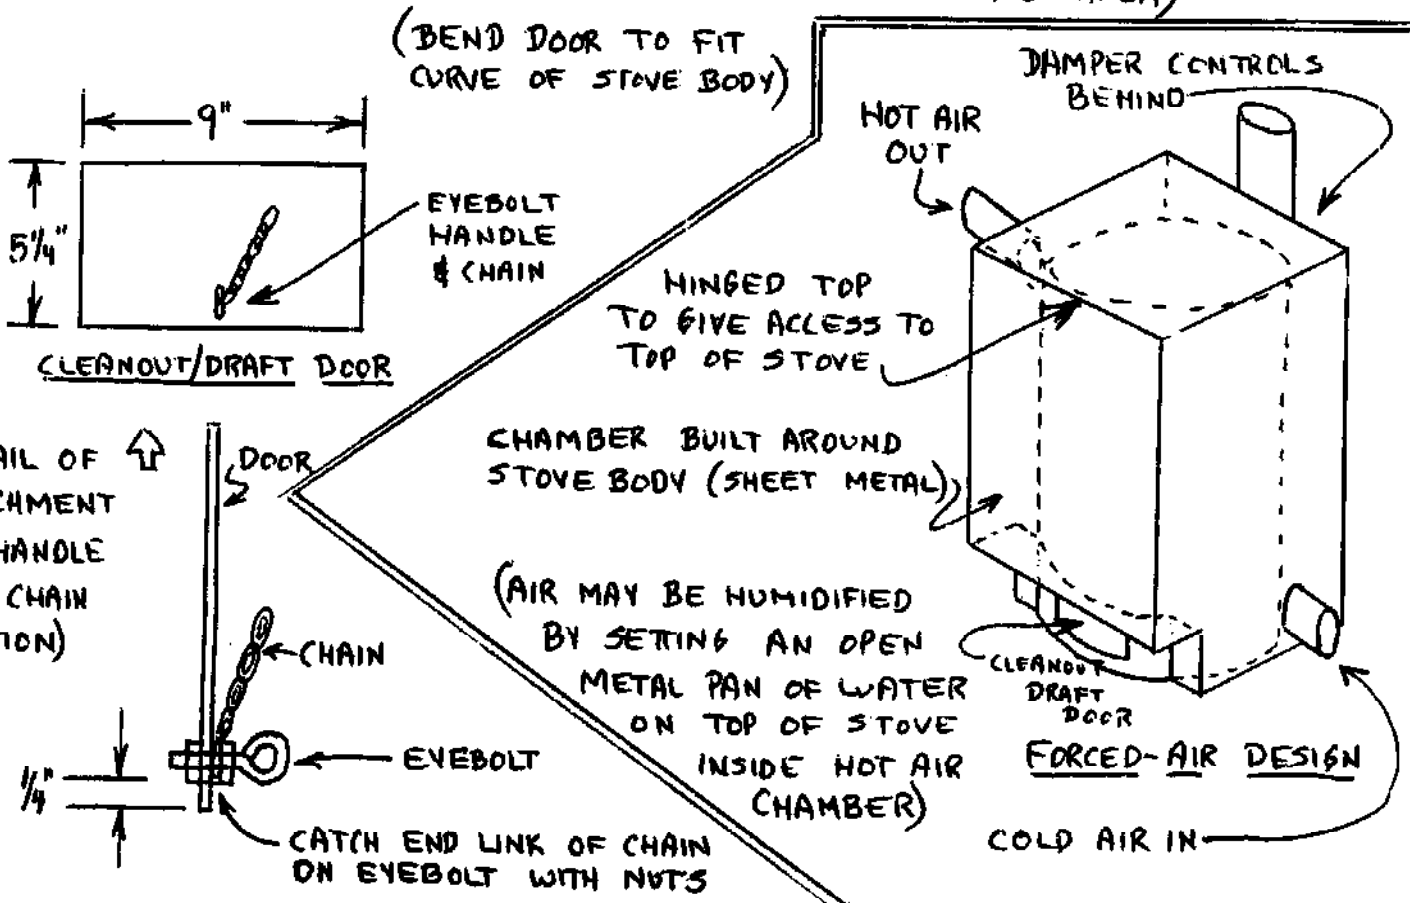 (BEND DOOR TO FIT
CURVE OF STOVE BODY)
9"
5¼"
EYEBOLT
HANDLE
& CHAIN
CLEANOUT/DRAFT DOOR
OF
DOOR
HANDLE
CHAIN
CHAIN
¼"
EYEBOLT
CATCH END LINK OF CHAIN
ON EYEBOLT WITH NUTS
DAMPER CONTROLS
BEHIND
HOT AIR
OUT
HINGED TOP
TO GIVE ACCESS TO
TOP OF STOVE
CHAMBER BUILT AROUND
STOVE BODY (SHEET METAL)
(AIR MAY BE HUMIDIFIED
BY SETTING AN OPEN
METAL PAN OF WATER
ON TOP OF STOVE
INSIDE HOT AIR
CHAMBER)
CLEANOUT
DRAFT
DOOR
FORCED-AIR DESIGN
COLD AIR IN